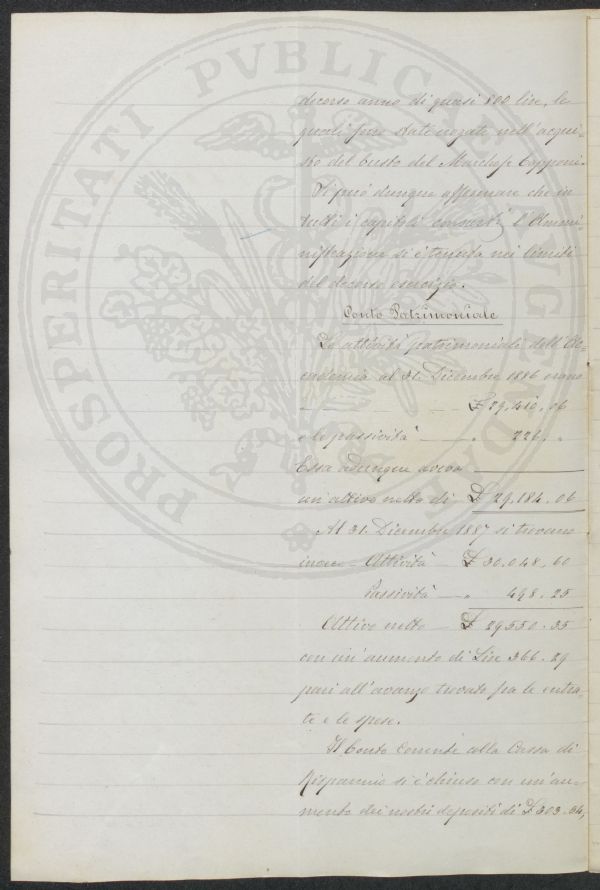 PROSPERITATI PVBLICAE AVGENDAE
decorso anno di quasi 800 lire, le
quali furo state erogate nell'acqui-
sto del busto del Marchese Capponi.
Si può dunque affermare che in
tutti i capitoli consueti l'Ammi-
nistrazione si è tenuta nei limiti
del decorso esercizio.
Conto Patrimoniale
Le attività patrimoniali dell'Ac-
cademia al 31. Dicembre 1886 erano
£ 29,410,06
e le passività — „ 226, „
Essa adunque aveva
un'attivo netto di £ 29,184,06
Al 31. Dicembre 1887 si trovano
invece — Attività £ 30.048,60
Passività — „ 498,25
Attivo netto — £ 29550.35
con un'aumento di Lire 366.29
pari all'avanzo trovato fra le entra-
te e le spese.
Il Conto Corrente colla Cassa di
Risparmio si è chiuso con un'au-
mento dei nostri depositi di £ 303.34,